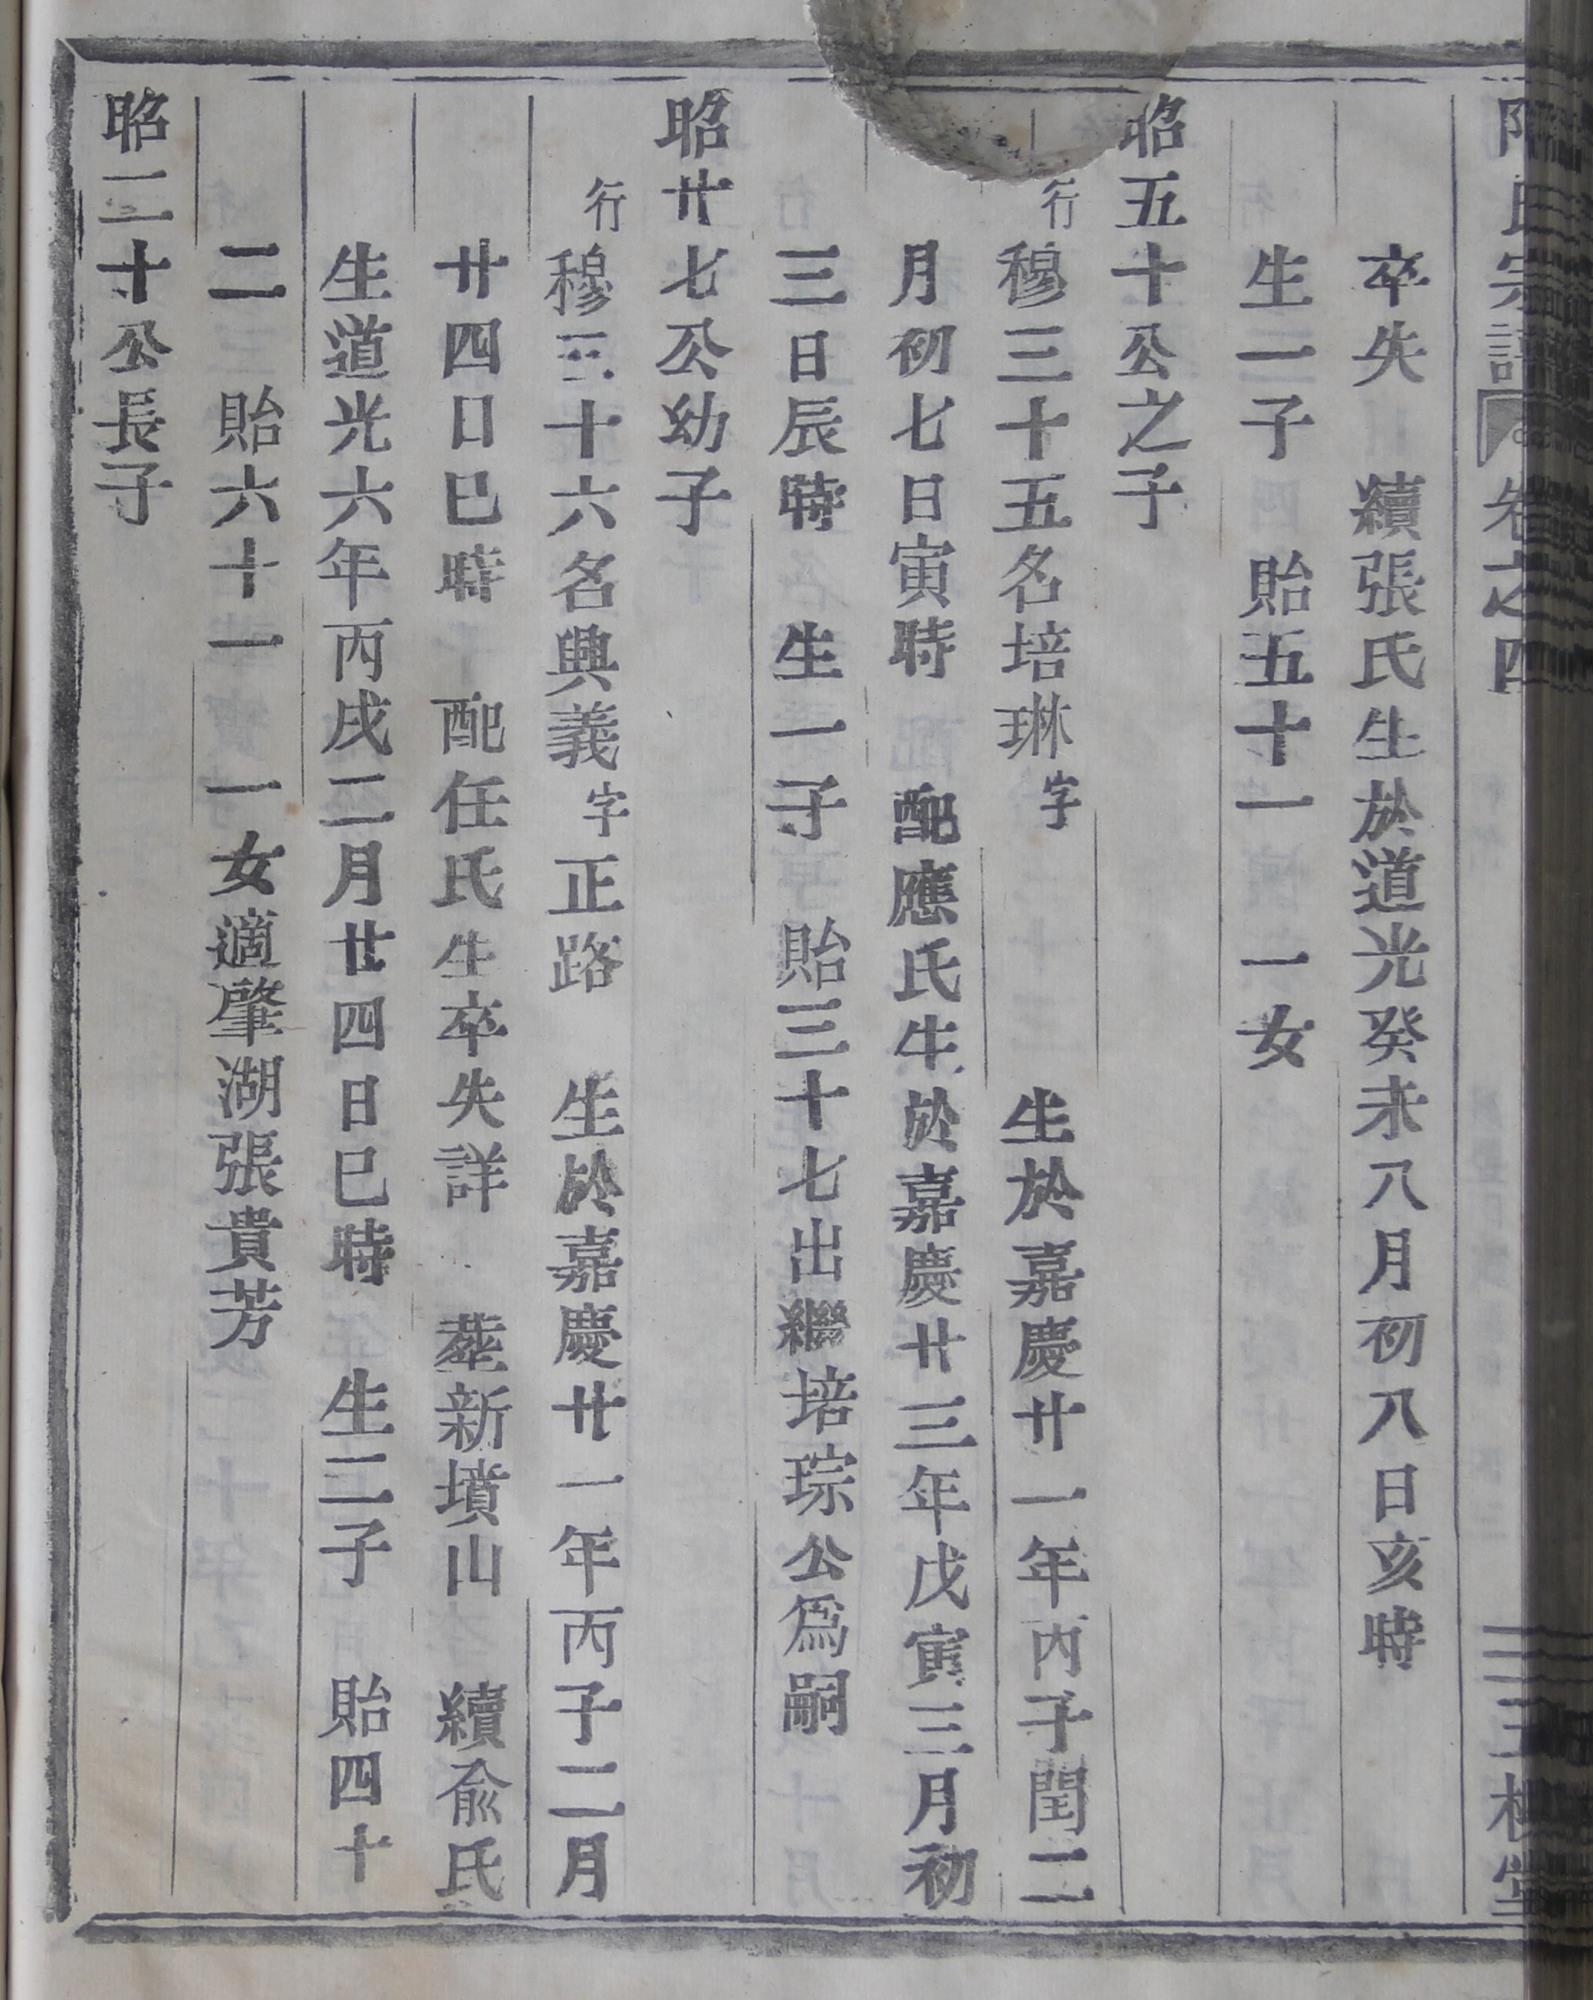 氏宗譜 卷之四 三槐堂
卒失 續張氏生於道光癸未八月初八日亥時
生一子 貽五十一 一女
昭五十公之子
行穆三十五名培琳字 生於嘉慶廿一年丙子閏二
月初七日寅時 配應氏生於嘉慶廿三年戊寅三月初
三日辰時 生一子 貽三十七出繼培琮公爲嗣
昭廿七公幼子
行穆三十六名興義字正路 生於嘉慶廿一年丙子二月
廿四日巳時 配任氏生卒失詳 葬新墳山 續俞氏
生道光六年丙戌二月廿四日巳時 生二子 貽四十
二 貽六十一 一女適肇湖張貴芳
昭二十公長子